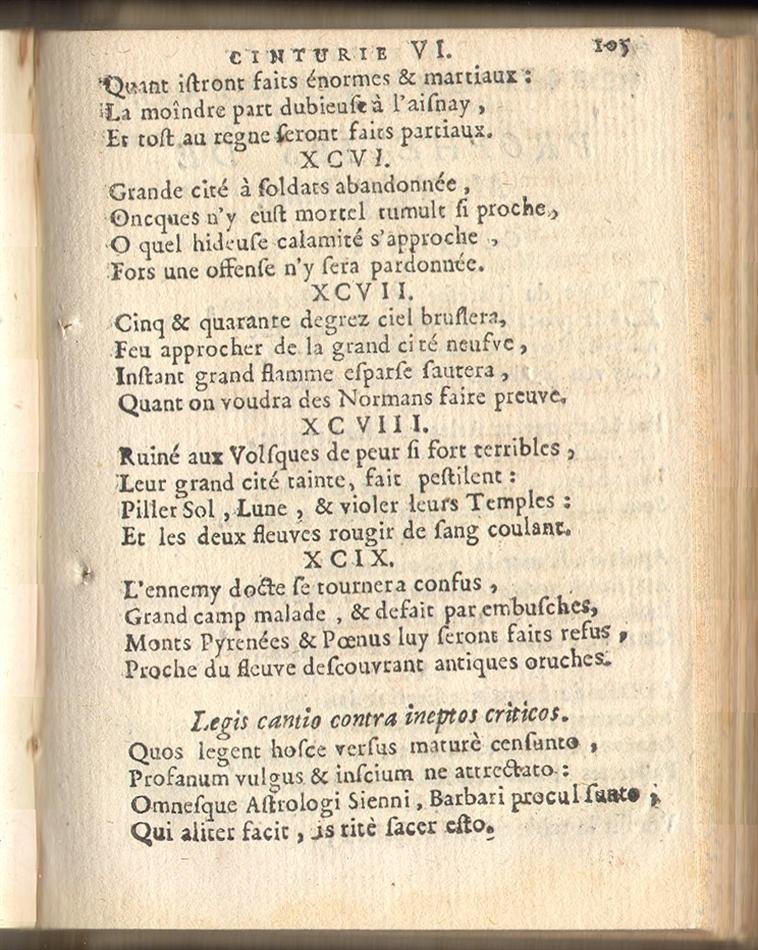 CINTURIE VI. 105
Quant iſtront faits énormes & martiaux :
La moîndre part dubieuſe à l'aiſnay ,
Et toſt au regne ſeront faits partiaux.
XCVI.
Grande cité à ſoldats abandonnée ,
Oncques n'y euſt mortel tumult ſi proche ,
O quel hideuſe calamité s'approche ,
Fors une offenſe n'y ſera pardonnée.
XCVII.
Cinq & quarante degrez ciel bruſlera,
Feu approcher de la grand cité neufve ,
Inſtant grand flamme eſparſe ſautera ,
Quant on voudra des Normans faire preuve.
XCVIII.
Ruiné aux Volſques de peur ſi fort terribles ,
Leur grand cité tainte, fait peſtilent :
Piller Sol , Lune , & violer leurs Temples :
Et les deux fleuves rougir de ſang coulant.
XCIX.
L'ennemy docte ſe tournera confus ,
Grand camp malade , & defait par embuſches,
Monts Pyrenées & Pœnus luy ſeront faits refus ,
Proche du fleuve deſcouvrant antiques oruches.
Legis cantio contra ineptos criticos.
Quos legent hoſce verſus maturè cenſunto ,
Profanum vulgus & inſcium ne attrectato :
Omneſque Aſtrologi Sienni , Barbari procul ſunto ,
Qui aliter facit , is ritè ſacer eſto.